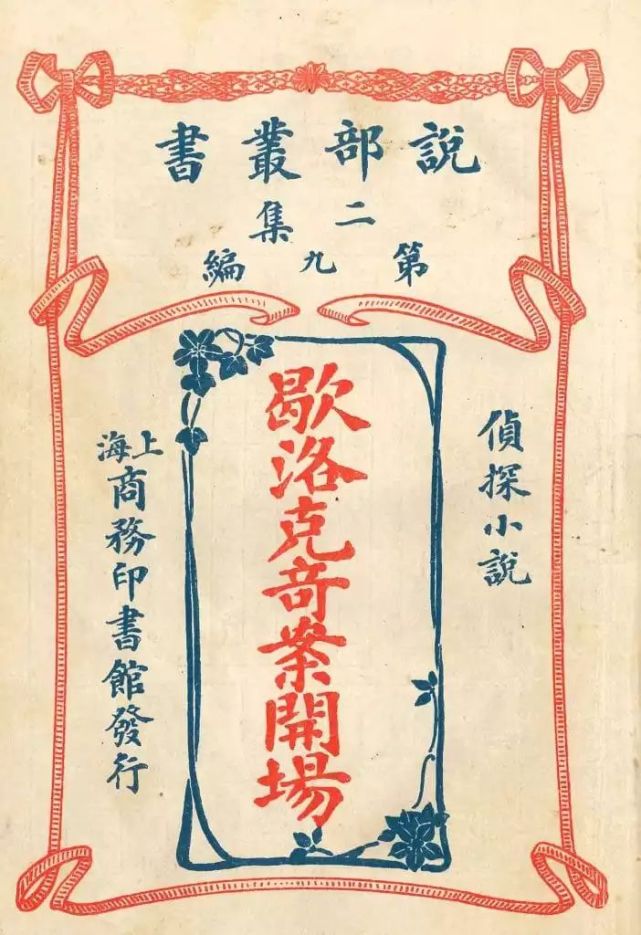 說部叢書
二集
第九編
偵探小說
歇洛克奇案開場
上海商務印書館發行